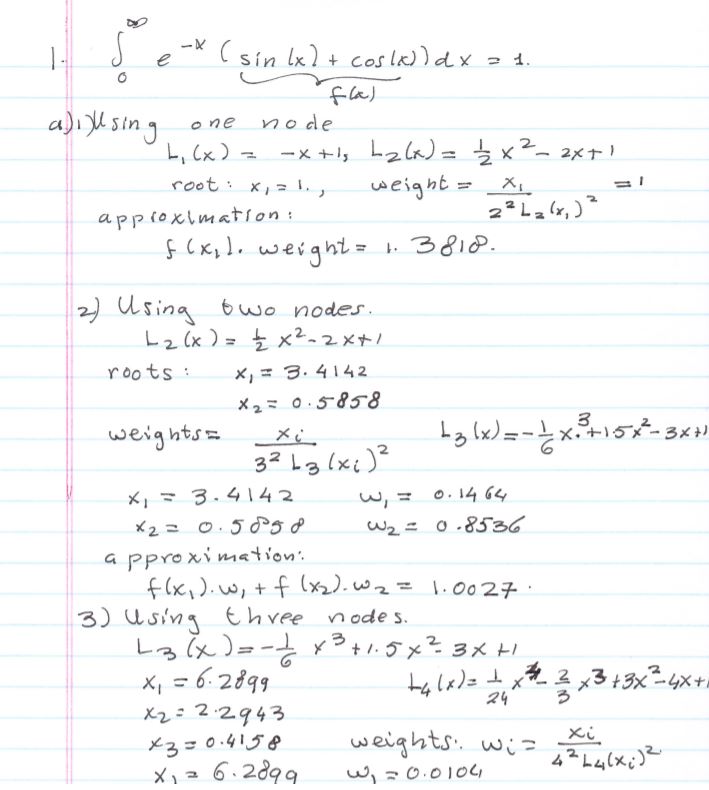 1. ∫₀^∞ e^-x (sin(x) + cos(x)) dx = 1.
f(x)
a) 1) Using one node
L₁(x) = -x+1, L₂(x) = 1/2 x² - 2x+1
root: x₁ = 1., weight = x₁ / 2² L₂(x₁)² = 1
approximation:
f(x₁). weight = 1.3818.
2) Using two nodes.
L₂(x) = 1/2 x² - 2x+1
roots: x₁ = 3.4142
x₂ = 0.5858
weights = xᵢ / 3² L₃(xᵢ)² L₃(x) = -1/6 x³ + 1.5x² - 3x+1
x₁ = 3.4142 w₁ = 0.1464
x₂ = 0.5858 w₂ = 0.8536
approximation:
f(x₁).w₁ + f(x₂).w₂ = 1.0027.
3) Using three nodes.
L₃(x) = -1/6 x³ + 1.5x² - 3x+1
x₁ = 6.2899 L₄(x) = 1/24 x⁴ - 2/3 x³ + 3x² - 4x+1
x₂ = 2.2943
x₃ = 0.4158 weights: wᵢ = xᵢ / 4² L₄(xᵢ)²
x₁ = 6.2899 w₁ = 0.0104